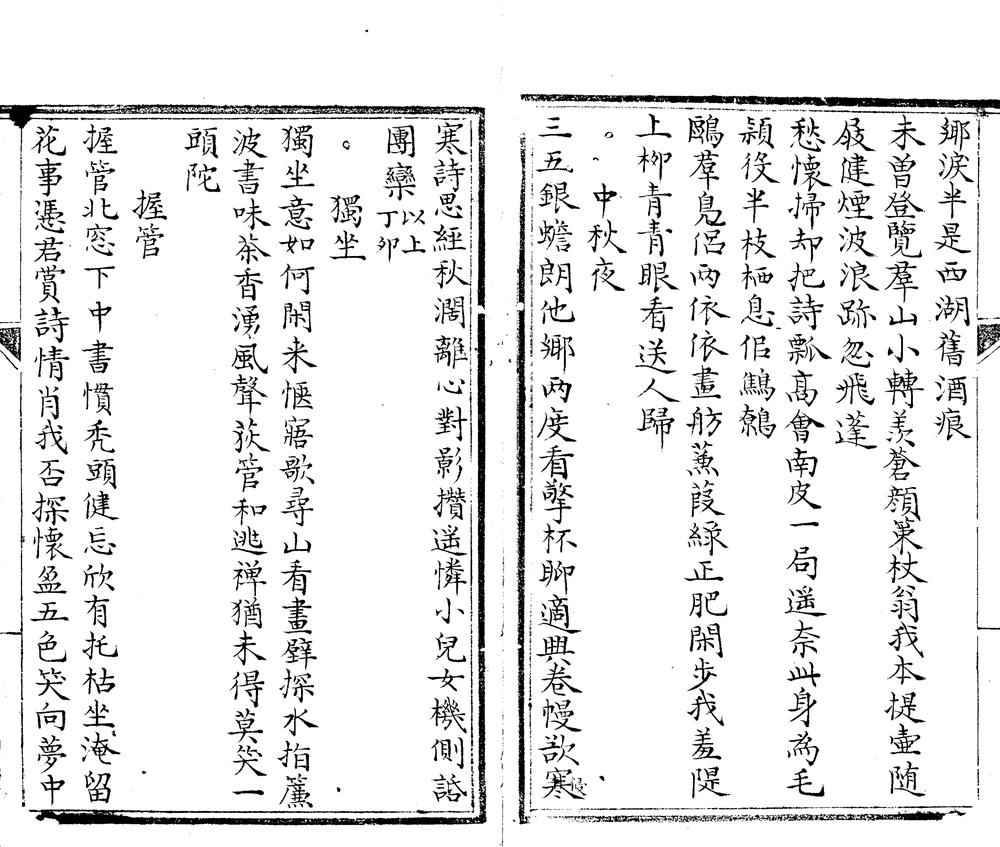 鄉淚半是西湖舊酒痕
未曾登覽羣山小轉羨蒼顏策杖翁我本提壺随
屐健煙波浪跡忽飛蓬
愁懷掃却把詩瓢高會南皮一局遥奈此身為毛
潁役半枝栖息佀鷦鷯
鷗羣鳧侶兩依依畫舫蒹葭綠正肥閑步我羞隄
上柳青青眼看送人歸
。中秋夜
三五銀蟾朗他鄉兩度看擎杯聊適興卷幔欲寒侵
寒詩思經秋濶離心對影攢遥憐小兒女機側話
團欒以上丁卯
。獨坐
獨坐意如何閑来愜寤歌尋山看畫壁探水指簾
波書味茶香湧風聲荻管和逃禅猶未得莫笑一
頭陀
握管
握管北窓下中書慣禿頭健忘欣有托枯坐淹留
花事憑君賞詩情肖我否探懷盈五色笑向夢中